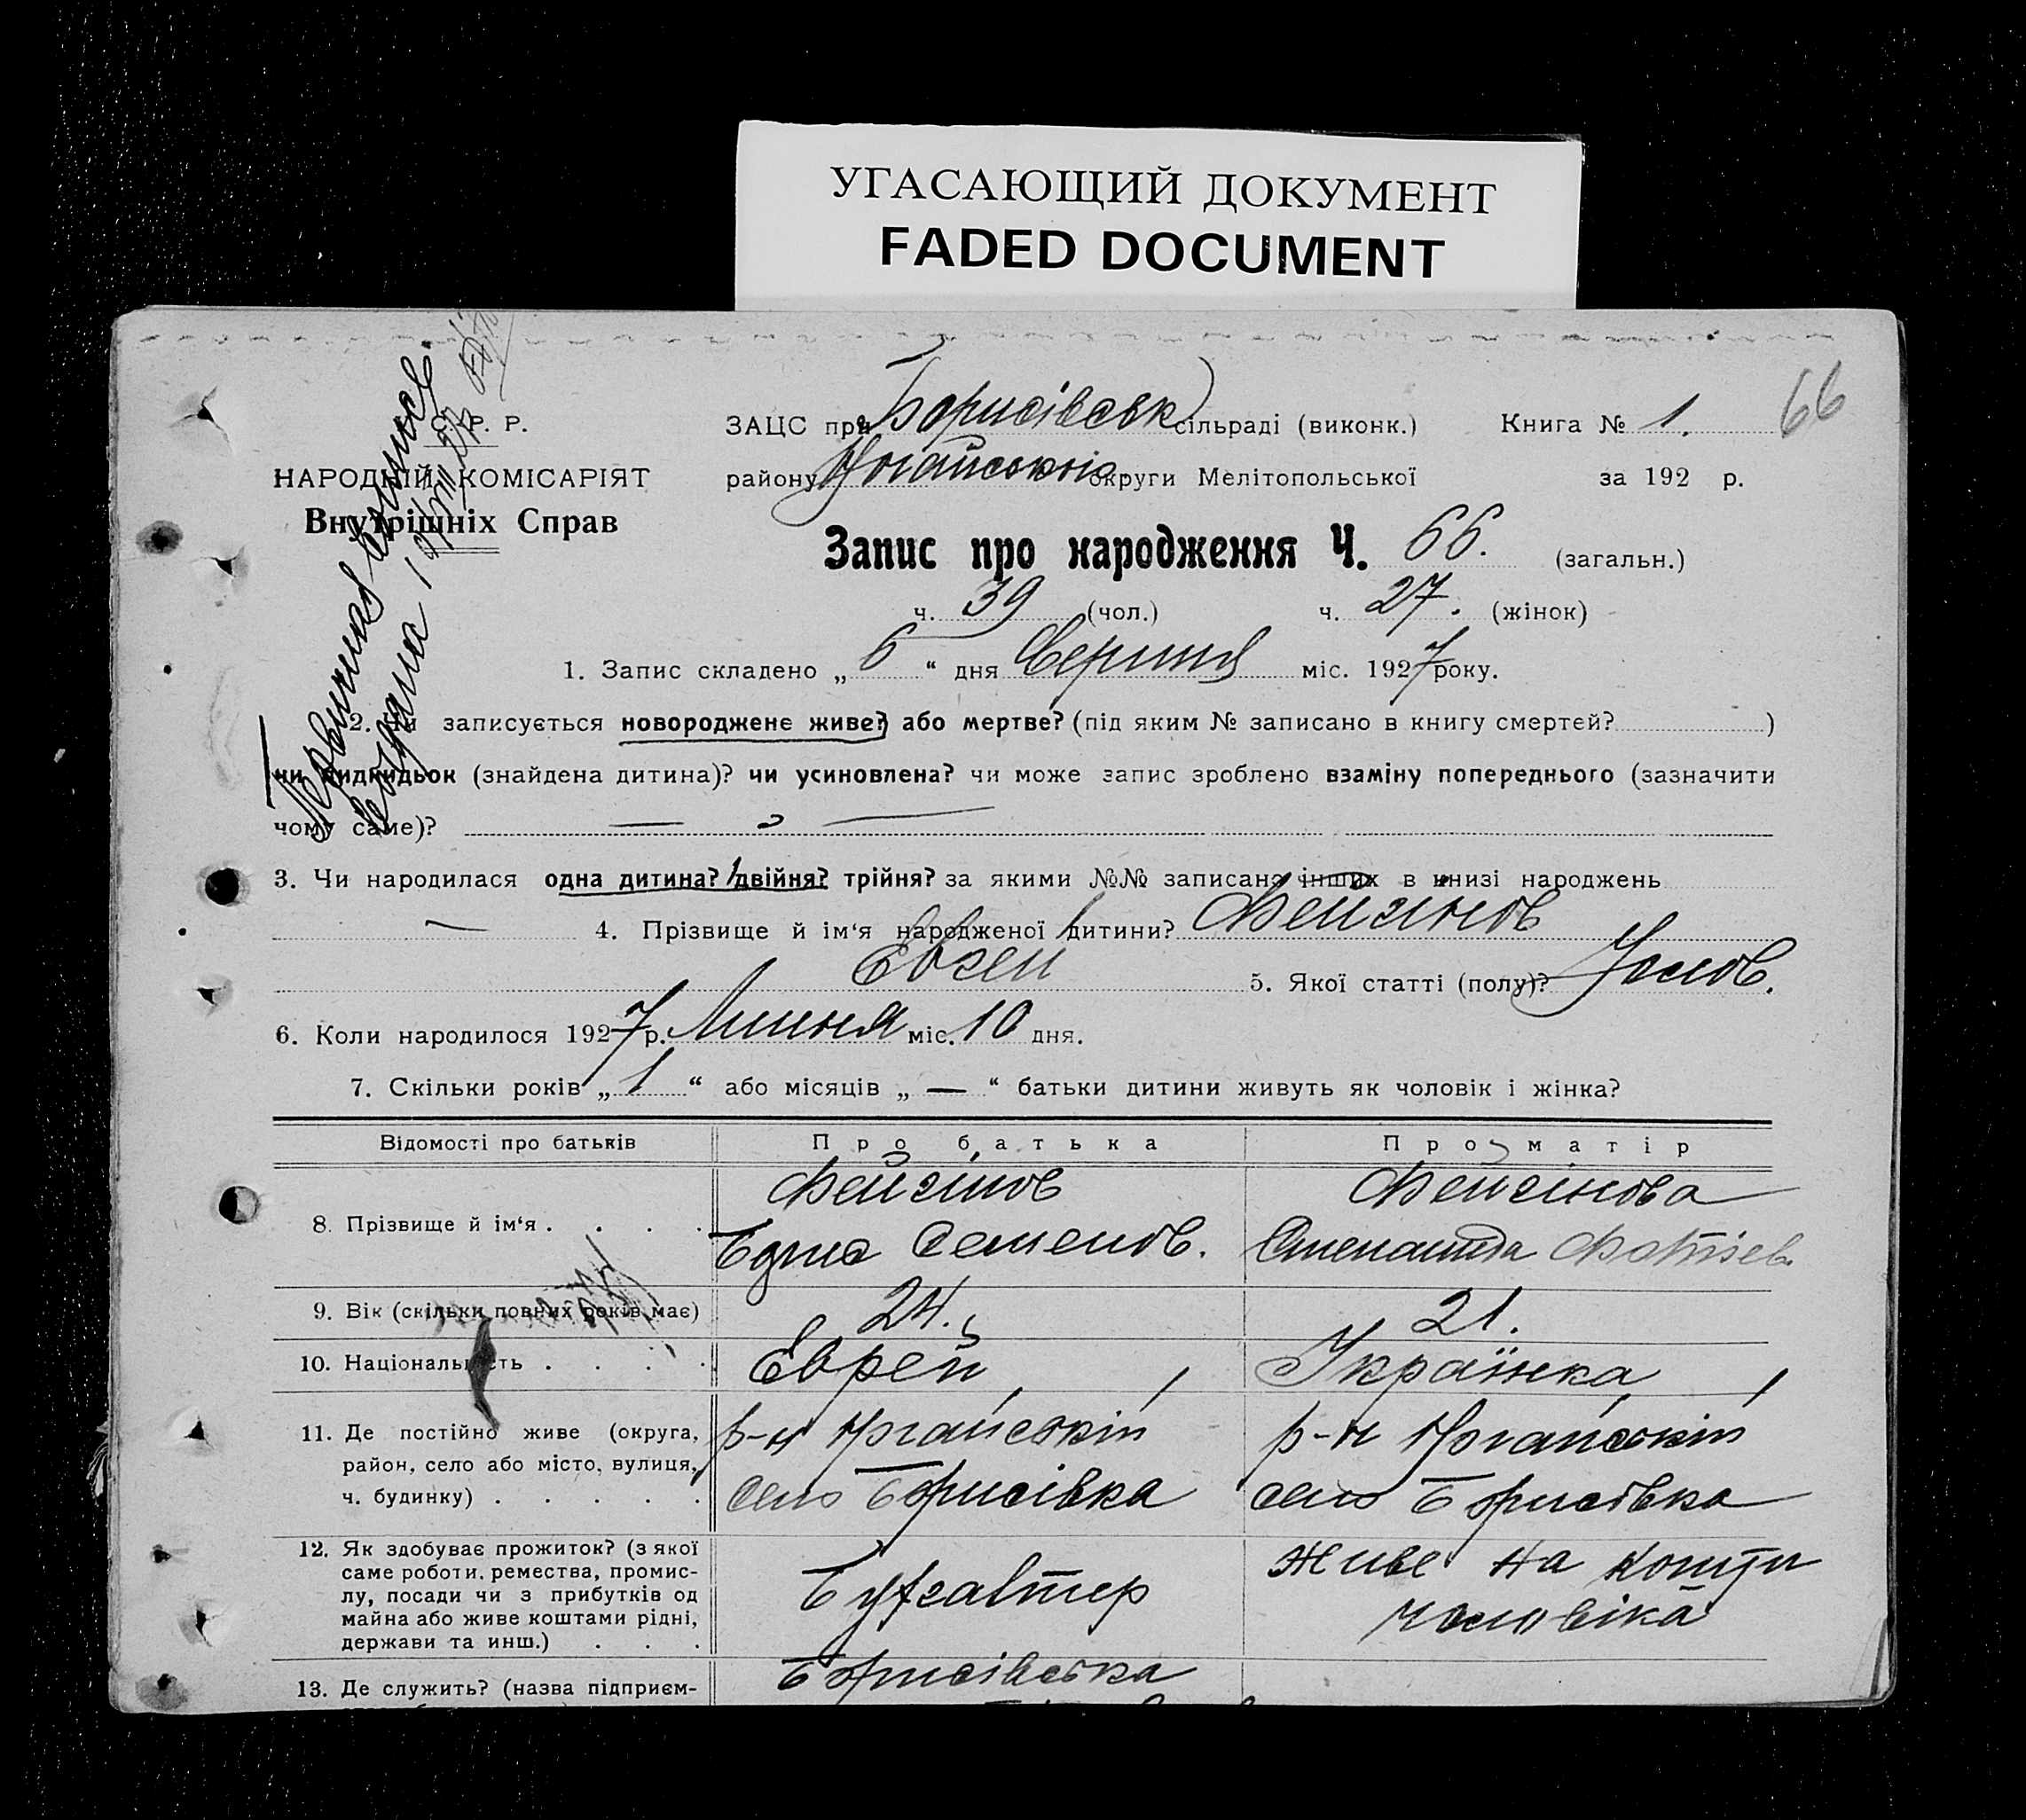 УГАСАЮЩИЙ ДОКУМЕНТ
FADED DOCUMENT
66
С. Р. Р.
НАРОДНІЙ КОМІСАРІЯТ
Внутрішніх Справ
ЗАЦС при Борисівськ сільраді (виконк.) Книга № 1.
району Ногайської округи Мелітопольської за 192 р.
Запис про народження Ч. 66. (загальн.)
ч. 39 (чол.) ч. 27. (жінок)
1. Запис складено „ 6 “ дня Серпня міс. 1927 року.
2. Чи записується новороджене живе? або мертве? (під яким № записано в книгу смертей? )
чи підкидьок (знайдена дитина)? чи усиновлена? чи може запис зроблено взаміну попереднього (зазначити
чому саме)? —
3. Чи народилася одна дитина? двійня? трійня? за якими №№ записано інших в книзі народжень
— 4. Прізвище й ім‘я народженої дитини? Фейгінов
Евген 5. Якої статті (полу)? Чолов.
6. Коли народилося 1927 р. Липня міс. 10 дня.
7. Скільки років „ 1 “ або місяців „ — “ батьки дитини живуть як чоловік і жінка?
Відомості про батьків Про батька Про матір
8. Прізвище й ім‘я . . . . Фейгінов Фейгінова
Семенов. Степанида Фотіев.
9. Вік (скільки повних років має) 24. 21.
10. Національність . . . . Еврей Українка
11. Де постійно живе (округа, р-н Ногайскій р-н Ногайскій
район, село або місто, вулиця, село Борисівка село Борисівка
ч. будинку) . . . . .
12. Як здобуває прожиток? (з якої Живе на кошти
саме роботи, ремества, промис- Бухгалтер чоловіка
лу, посади чи з прибутків од
майна або живе коштами рідні,
держави та инш.) . . .
13. Де служить? (назва підприєм- Борисівська